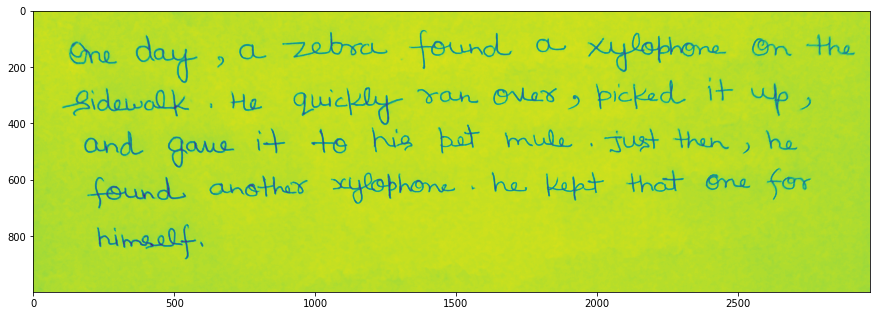 0
One day, a zebra found a xylophone on the
200
sidewalk. He quickly ran over, picked it up,
400
and gave it to his pet mule. just then, he
600
found another xylophone. he kept that one for
800
himself.
0 500 1000 1500 2000 2500